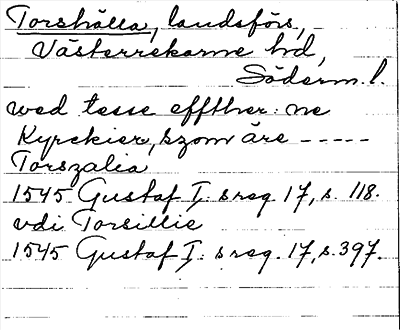 Torshälla, landsförs,
Västerrekarne hd,
Söderm. l.
wed tesse effther: ne
Kyrckier, szom äre -----
Torszalia
1545 Gustaf I: s reg. 17, s. 118.
vdi Torsillie
1545 Gustaf I: s reg. 17, s. 397.